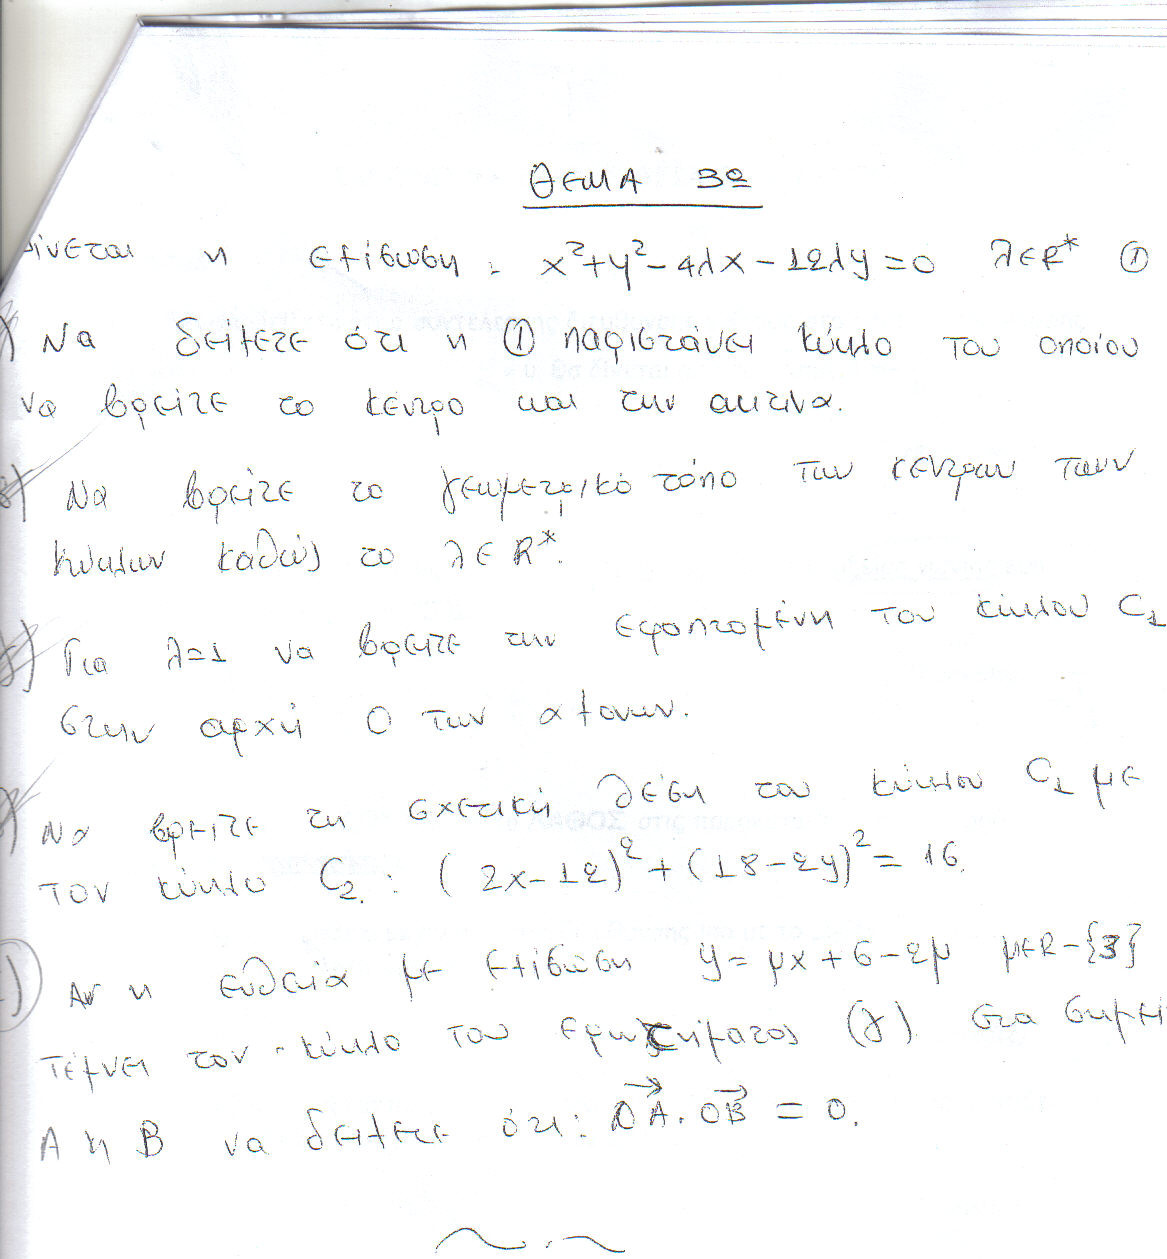 ΘΕΜΑ 3º
δίνεται η εξίσωση: x²+y²-4λx-12λy=0 λ∈R* ①
Να δείξετε ότι η ① παριστάνει κύκλο του οποίου
να βρείτε το κέντρο και την ακτίνα.
β) Να βρείτε το γεωμετρικό τόπο των κέντρων των
κύκλων καθώς το λ∈R*.
γ) Για λ=1 να βρείτε την εφαπτομένη του κύκλου C₁
στην αρχή Ο των αξόνων.
Να βρείτε τη σχετική θέση του κύκλου C₁ με
τον κύκλο C₂: (2x-12)²+(18-2y)²=16.
Αν η ευθεία με εξίσωση y=μx+6-2μ μ∈R-{3}
τέμνει τον κύκλο του ερωτήματος (γ) στα σημεί
Α η Β να δείξετε ότι: ΟΑ⃗·ΟΒ⃗=0.